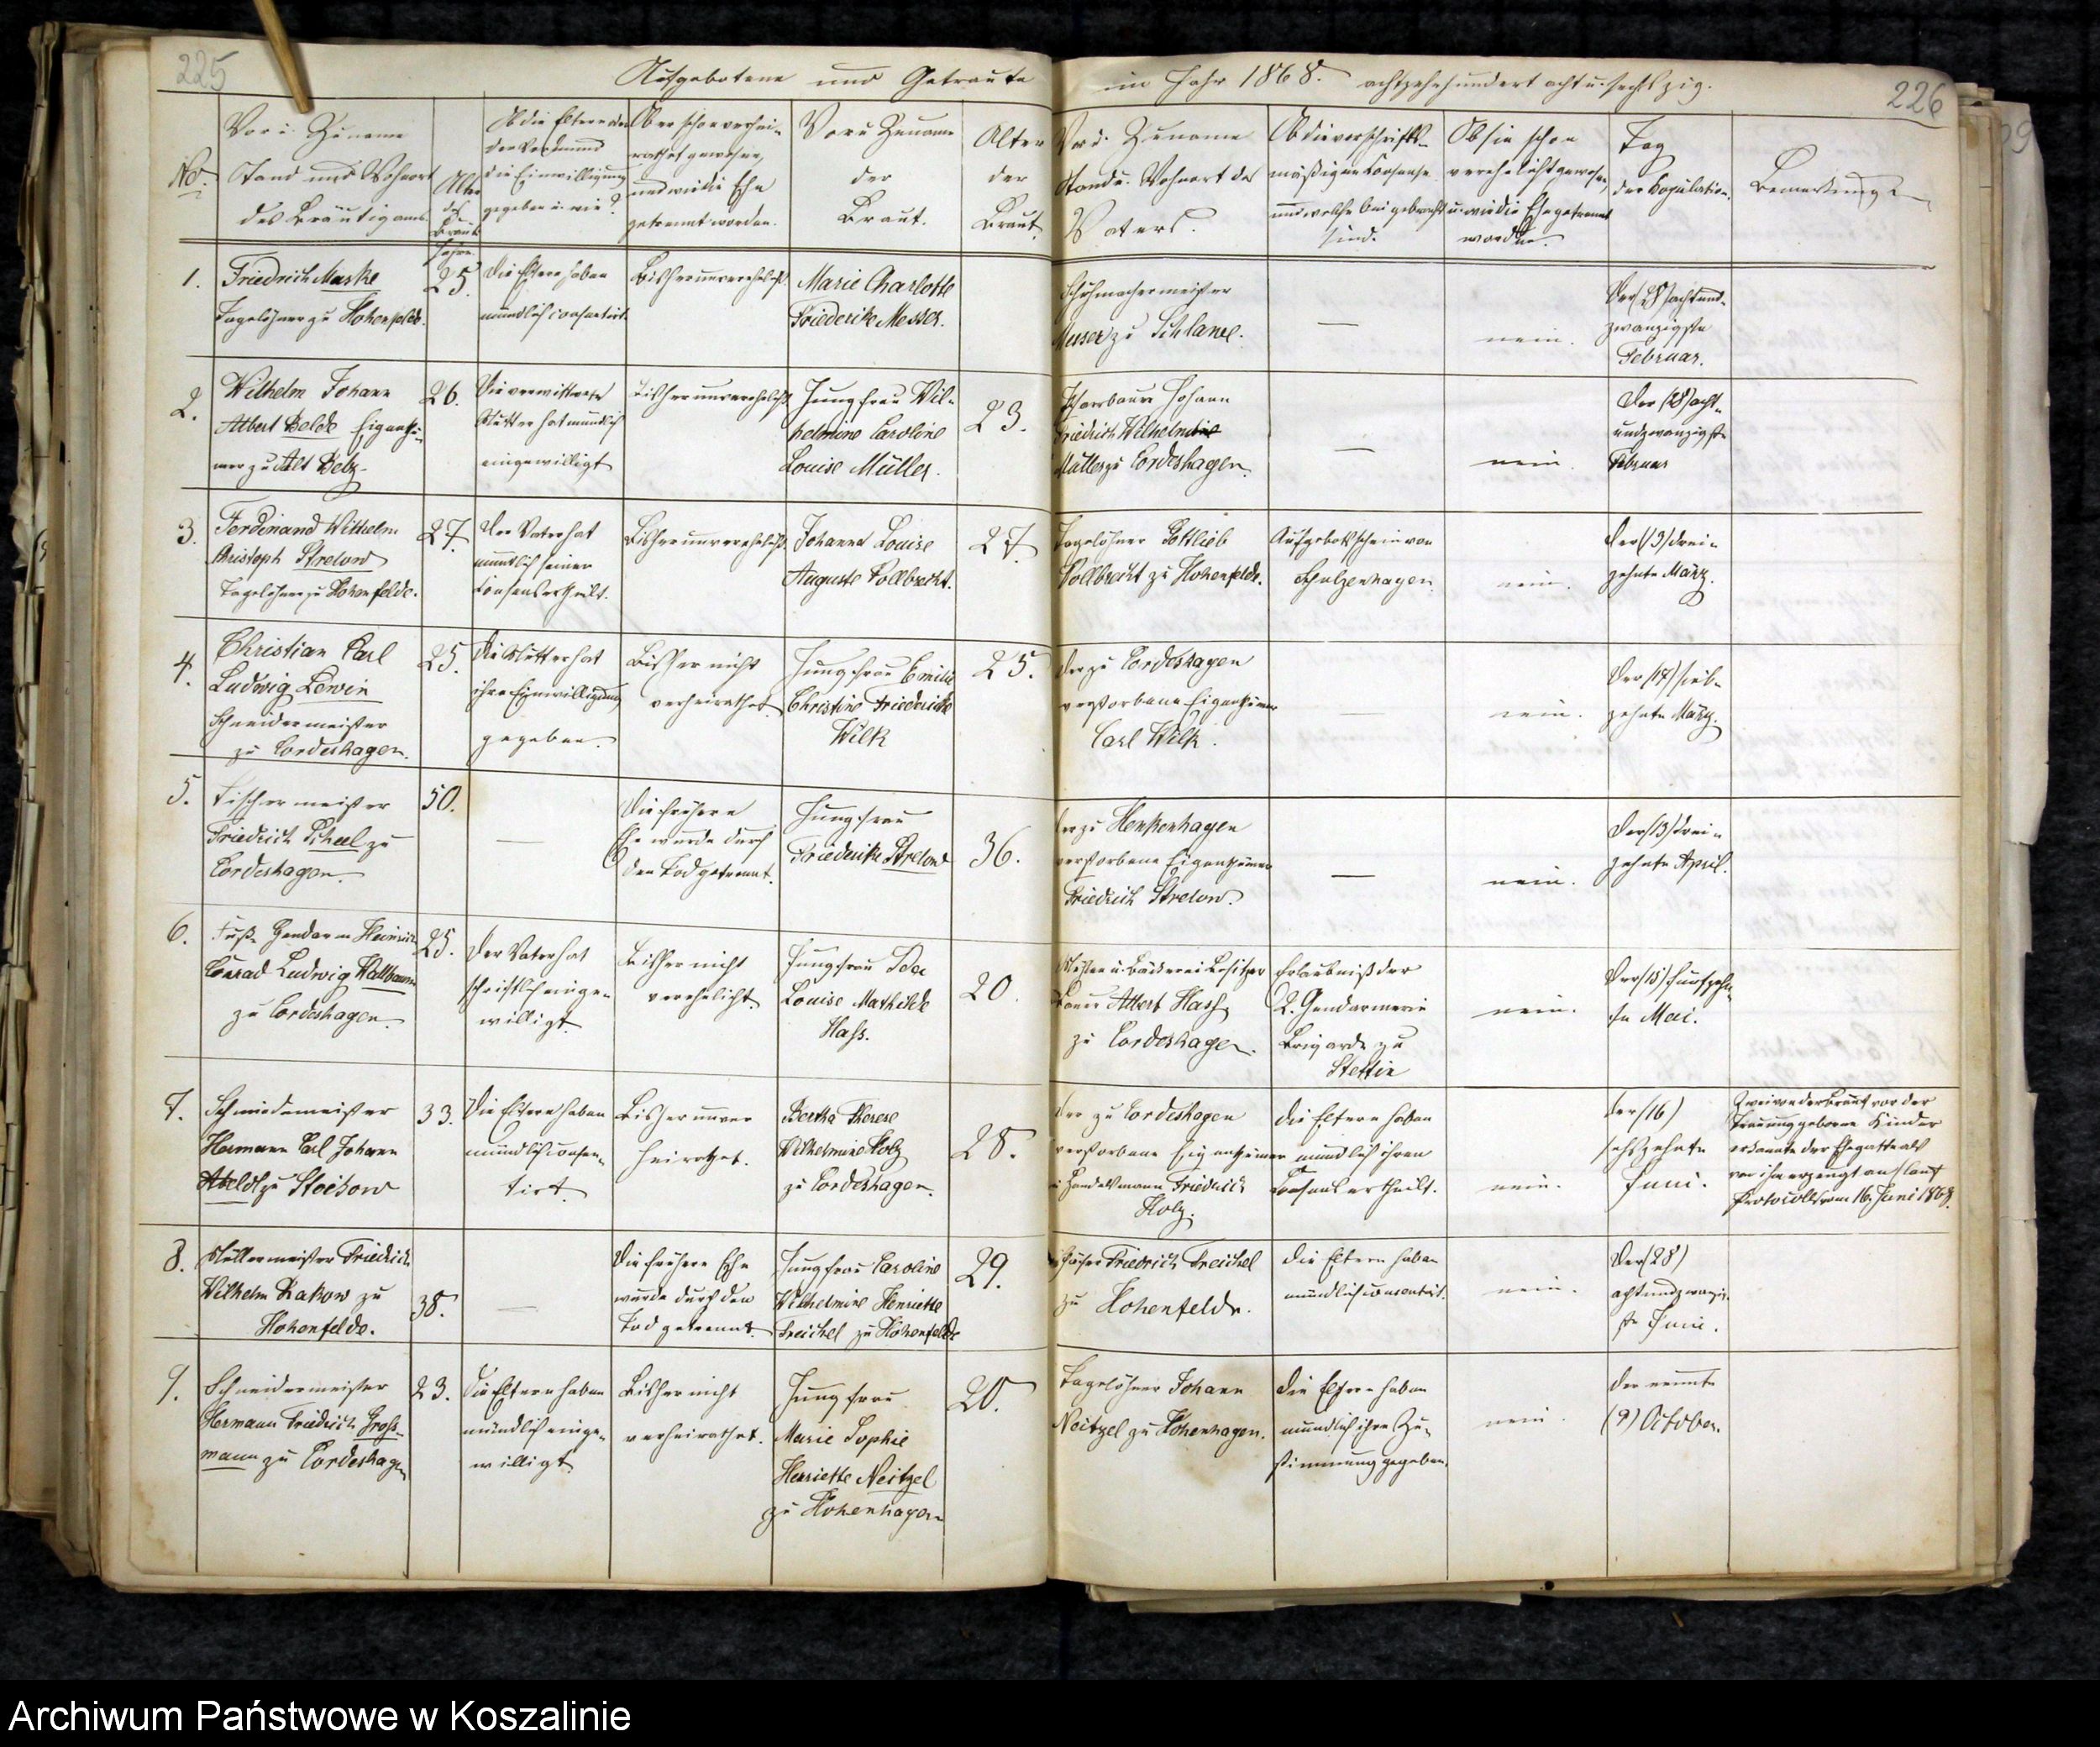 225
Aufgebotene und Getraute
im Jahr 1868. achtzehnhundert acht u. sechszig.
226
No.
Vor u. Zuname
Stand und Wohnort
des Bräutigams.
Alter
des
Bräut.
Jahre
Ob die Eltern oder
der Vormund
die Einwilligung
gegeben u. wie?
Ob er schon verhei-
rathet gewesen,
und wie die Ehe
getrennt worden.
Vor u Zuname
der
Braut.
Alter
der
Braut.
Vor u. Zuname
Stand u. Wohnort des
Vaters.
Ob die vorschrifts-
mäßigen Consense
und welche beigebracht
sind.
Ob sie schon
verehelicht gewesen,
u. wie die Ehe getrennt
worden.
Tag
der Copulation.
Bemerkungen
1.
Friedrich Maske
Tagelöhner zu Hohenfelde.
25.
Die Eltern haben
mündlich consentirt.
Bisher unverehelicht.
Marie Charlotte
Friederike Messer.
Schuhmachermeister
Messer zu Schlawe.
—
nein.
Der (28) acht und-
zwanzigste
Februar.
2.
Wilhelm Johann
Albert Belde Eigenthü-
mer zu Alt Belz.
26.
Die verwittwete
Mutter hat mündlich
eingewilligt
Bisher unverehelicht.
Jungfrau Wil-
helmine Caroline
Louise Müller.
23.
Johann
Friedrich Wilhelm
Müller zu Cordeshagen.
—
nein.
Der (28) acht-
undzwanzigste
Februar
3.
Ferdinand Wilhelm
Christoph Strelow
Tagelöhner zu Hohenfelde.
27.
Der Vater hat
mündlich seinen
Consens ertheilt.
Bisher unverehelicht.
Johanne Louise
Auguste Vollbrecht.
27.
Tagelöhner Gottlieb
Vollbrecht zu Hohenfelde.
Aufgebotsschein von
Schulzenhagen.
nein.
Der (13) drei-
zehnte März.
4.
Christian Carl
Ludwig Lewin
Schneidermeister
zu Cordeshagen.
25.
Die Mutter hat
ihre Einwilligung
gegeben.
Bisher nicht
verheirathet.
Jungfrau Emilie
Christine Friedericke
Wilk
25.
Der zu Cordeshagen
verstorbene Eigenthümer
Carl Wilk.
—
nein.
Der (17) sieb-
zehnte März.
5.
Tischermeister
Friedrich Scheel zu
Cordeshagen.
50.
—
Die frühere
Ehe wurde durch
den Tod getrennt.
Jungfrau
Friederike Strelow
36.
Der zu Henkenhagen
verstorbene Eigenthümer
Friedrich Strelow.
—
nein.
Der (13) drei-
zehnte April.
6.
Fuß-Gendarm Heinrich
Conrad Ludwig Wallbaum
zu Cordeshagen.
25.
Der Vater hat
schriftlich einge-
willigt.
Bisher nicht
verehelicht.
Jungfrau Ida
Louise Mathilde
Hass.
20.
u. Bäckerei Besitzer
Albert Hass
zu Cordeshagen.
Erlaubniß der
2. Gendarmerie
Brigade zu
Stettin
nein.
Der (15) fünfzehn-
te Mai.
7.
Schmiedemeister
Hermann Carl Johann
Abeldt zu Stoikow
33.
Die Eltern haben
mündlich consen-
tirt.
Bisher unver
heirathet.
Bertha Therese
Wilhelmine Holz
zu Cordeshagen.
28.
Der zu Cordeshagen
verstorbene Eigenthümer
u. Handelsmann Friedrich
Holz.
Die Eltern haben
mündlich ihren
Consens ertheilt.
nein.
Der (16)
sechszehnte
Juni.
Zwei von der Braut vor der
Trauung geborene Kinder
erkannte der Ehegatte als
von ihm erzeugt an laut
Protocolls vom 16. Juni 1868.
8.
Müllermeister Friedrich
Wilhelm Rakow zu
Hohenfelde.
38.
—
Die frühere Ehe
wurde durch den
Tod getrennt.
Jungfrau Caroline
Wilhelmine Henriette
Treichel zu Hohenfelde
29.
Schäfer Friedrich Treichel
zu Hohenfelde.
Die Eltern haben
mündlich consentirt.
nein.
Der (28)
achtundzwanzig-
ste Juni.
9.
Schneidermeister
Hermann Friedrich Gross-
mann zu Cordeshagen
23.
Die Eltern haben
mündlich einge-
willigt.
Bisher nicht
verheirathet.
Jungfrau
Marie Sophie
Henriette Neitzel
zu Hohenhagen
20.
Tagelöhner Johann
Neitzel zu Hohenhagen.
Die Eltern haben
mündlich ihre Zu-
stimmung gegeben.
nein.
Der neunte
(9) October.
Archiwum Państwowe w Koszalinie